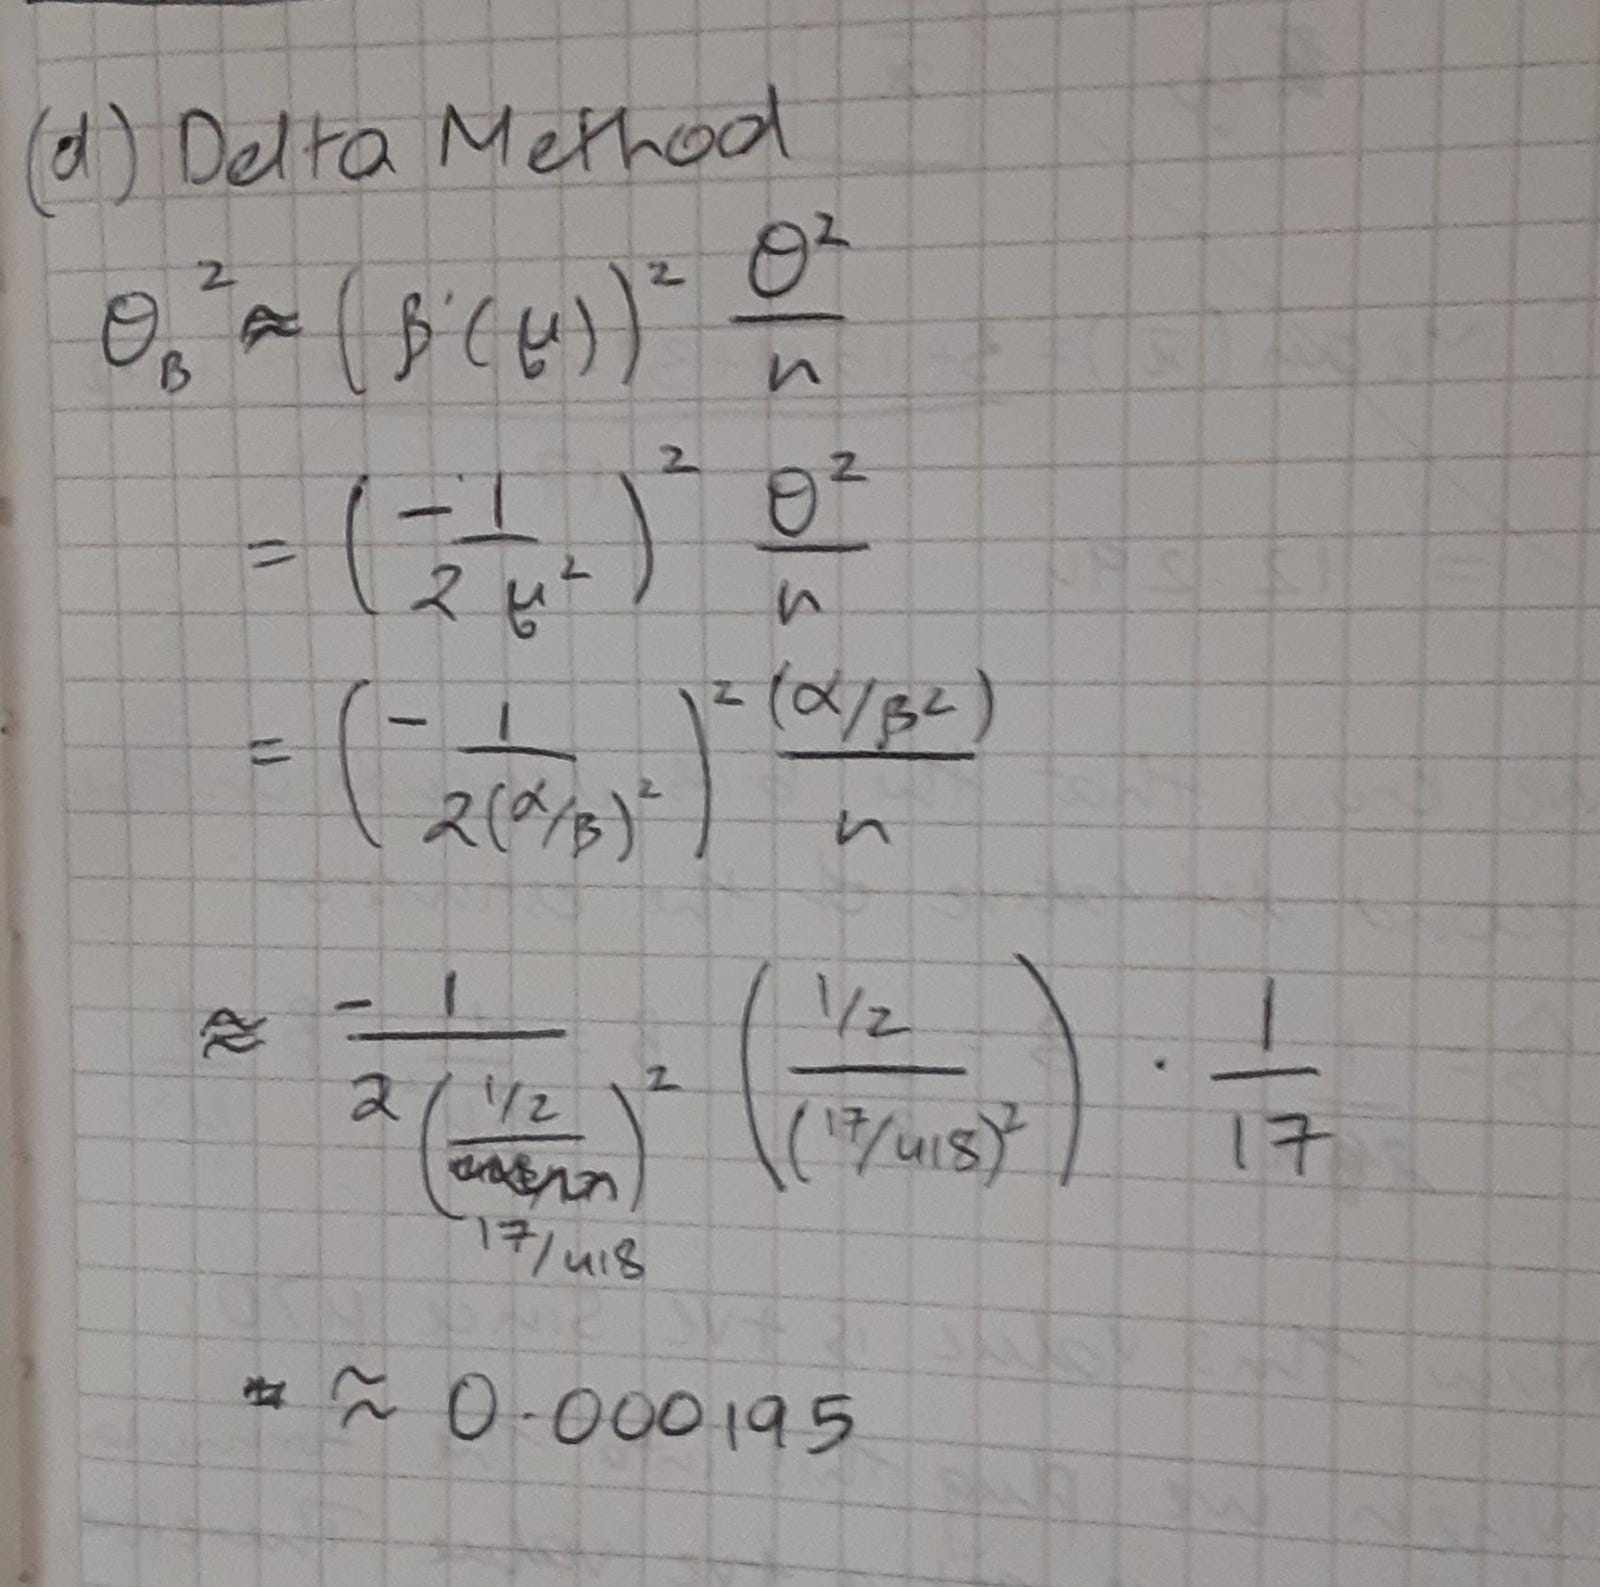 (d) Delta Method
θ_B² ≈ (β'(μ))² θ²/n
= (-1/(2μ²))² θ²/n
= (-1/(2(α/β)²))² (α/β²)/n
≈ -1/(2((1/2)/(17/418))²) ((1/2)/(17/418)²) · 1/17
≈ 0.000195